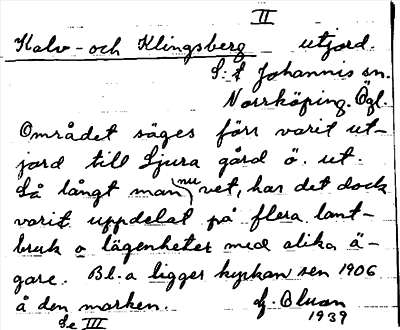 II
Kalv- och Klingsberg utjord.
S:t Johannis sn.
Norrköping. Ögl.
Området säges förr varit ut-
jord till Ljura gård ö. ut.
Så långt man nu vet, har det dock
varit uppdelat på flera lant-
bruk o lägenheter med olika ä-
gare. Bl.a ligger kyrkan sen 1906
å den marken.
1939
Se III